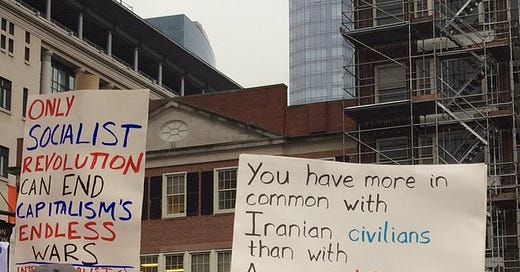 ONLY
SOCIALIST
REVOLUTION
CAN END
CAPITALISM'S
ENDLESS
WARS
You have more in
common with
Iranian civilians
than with